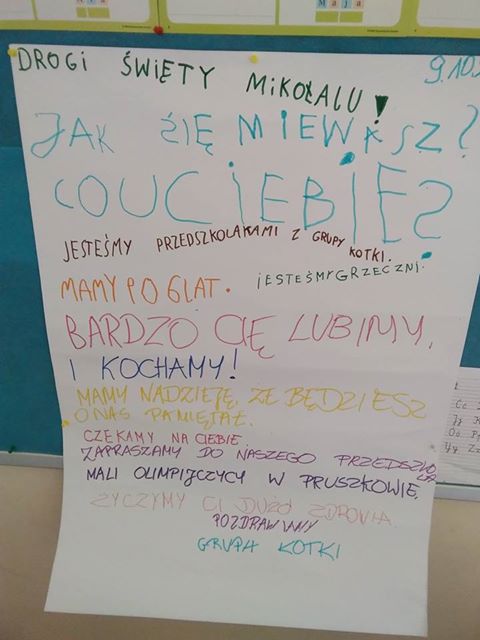 Maja
DROGI ŚWIĘTY MIKOŁALU!
9.10
JAK ŚIĘ MIEWASZ?
COUCIEBIE?
JESTEŚMY PRZEDSZKOLAKAMI Z GRUPY KOTKI.
JESTEŚMY GRZECZNI.
MAMY PO 6 LAT.
BARDZO CIĘ LUBIMY,
I KOCHAMY!
MAMY NADZIEJĘ, ŻE BĘDZIESZ
O NAS PAMIĘTAŁ.
CZEKAMY NA CIEBIE.
ZAPRASZAMY DO NASZEGO PRZEDSZKOLA
MALI OLIMPIJCZYCY W PRUSZKOWIE.
ŻYCZYMY CI DUŻO ZDROWIA.
POZDRAWIAMY
GRUPA KOTKI